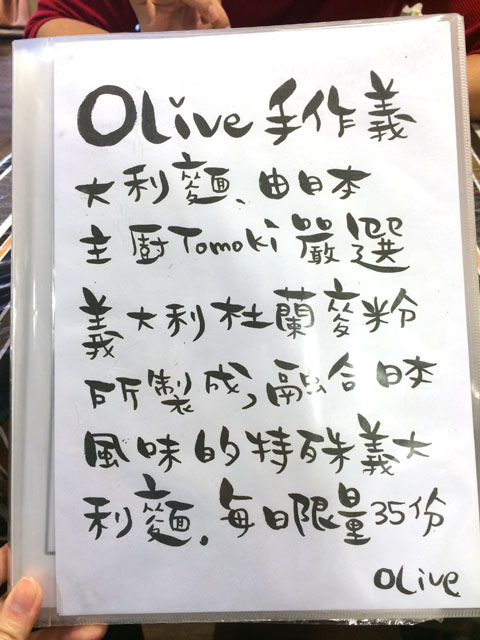 Olive 手作義
大利麵、由日本
主廚Tomoki嚴選
義大利杜蘭麥粉
所製成,融合日本
風味的特殊義大
利麵.每日限量35份
Olive